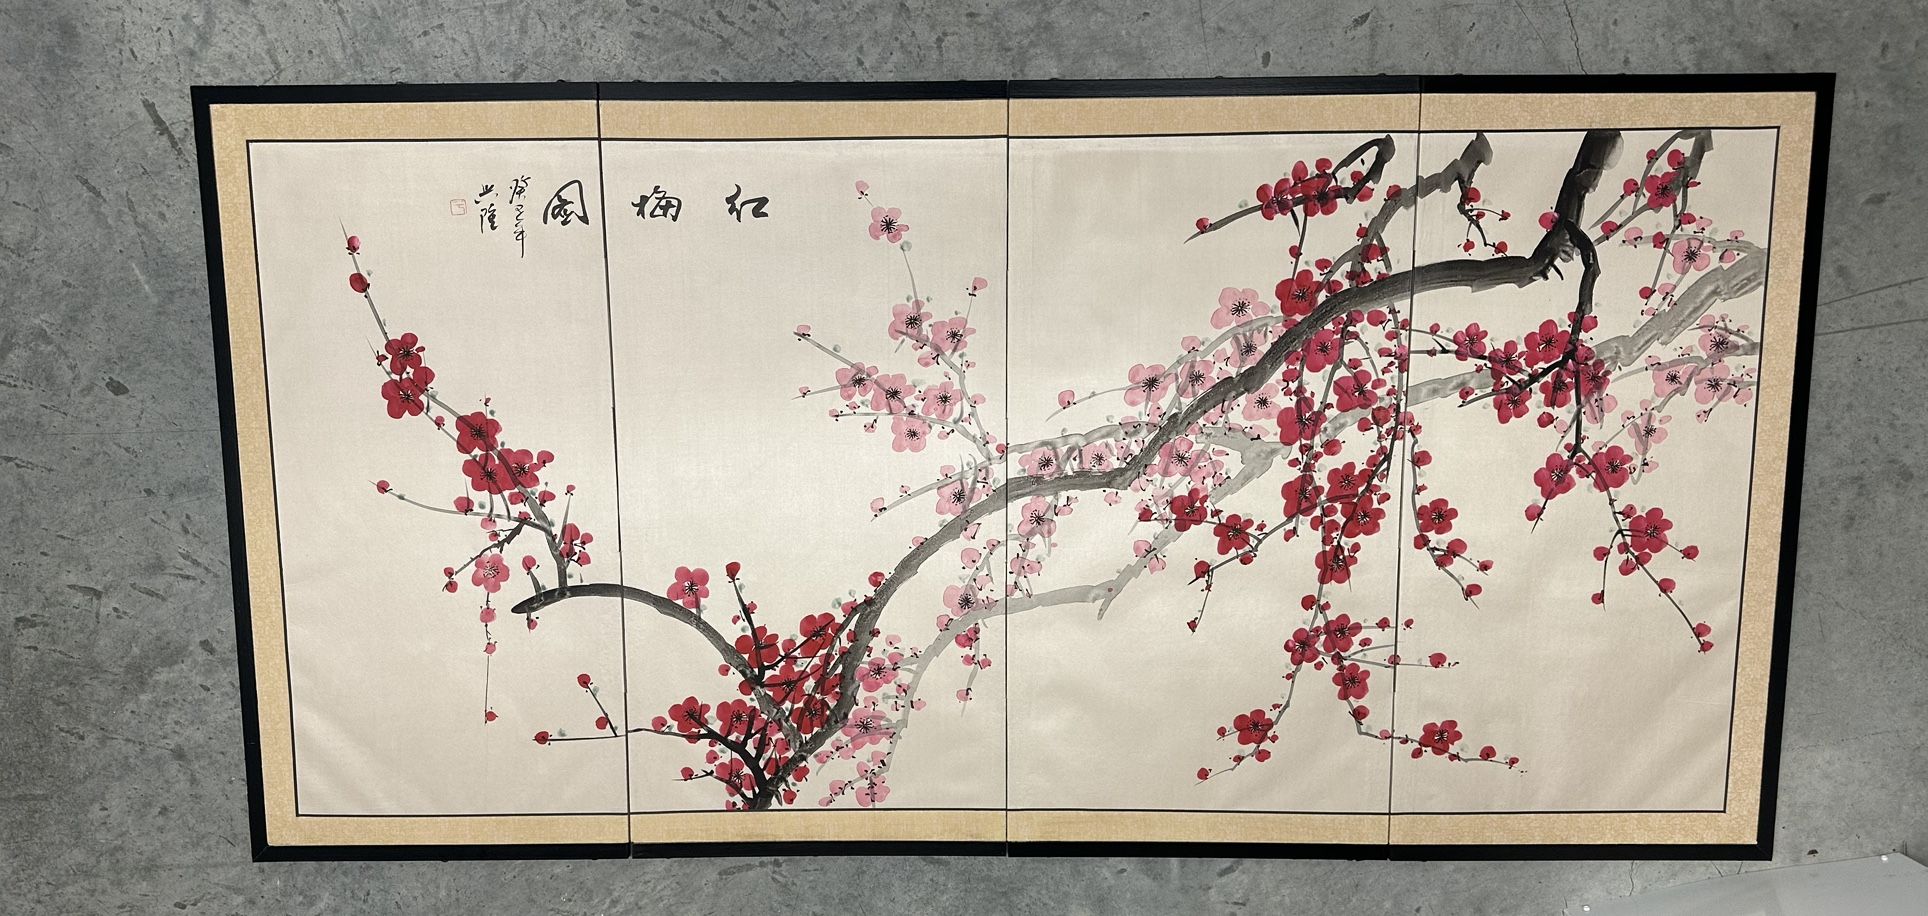 红梅图
癸巳年
兴隆